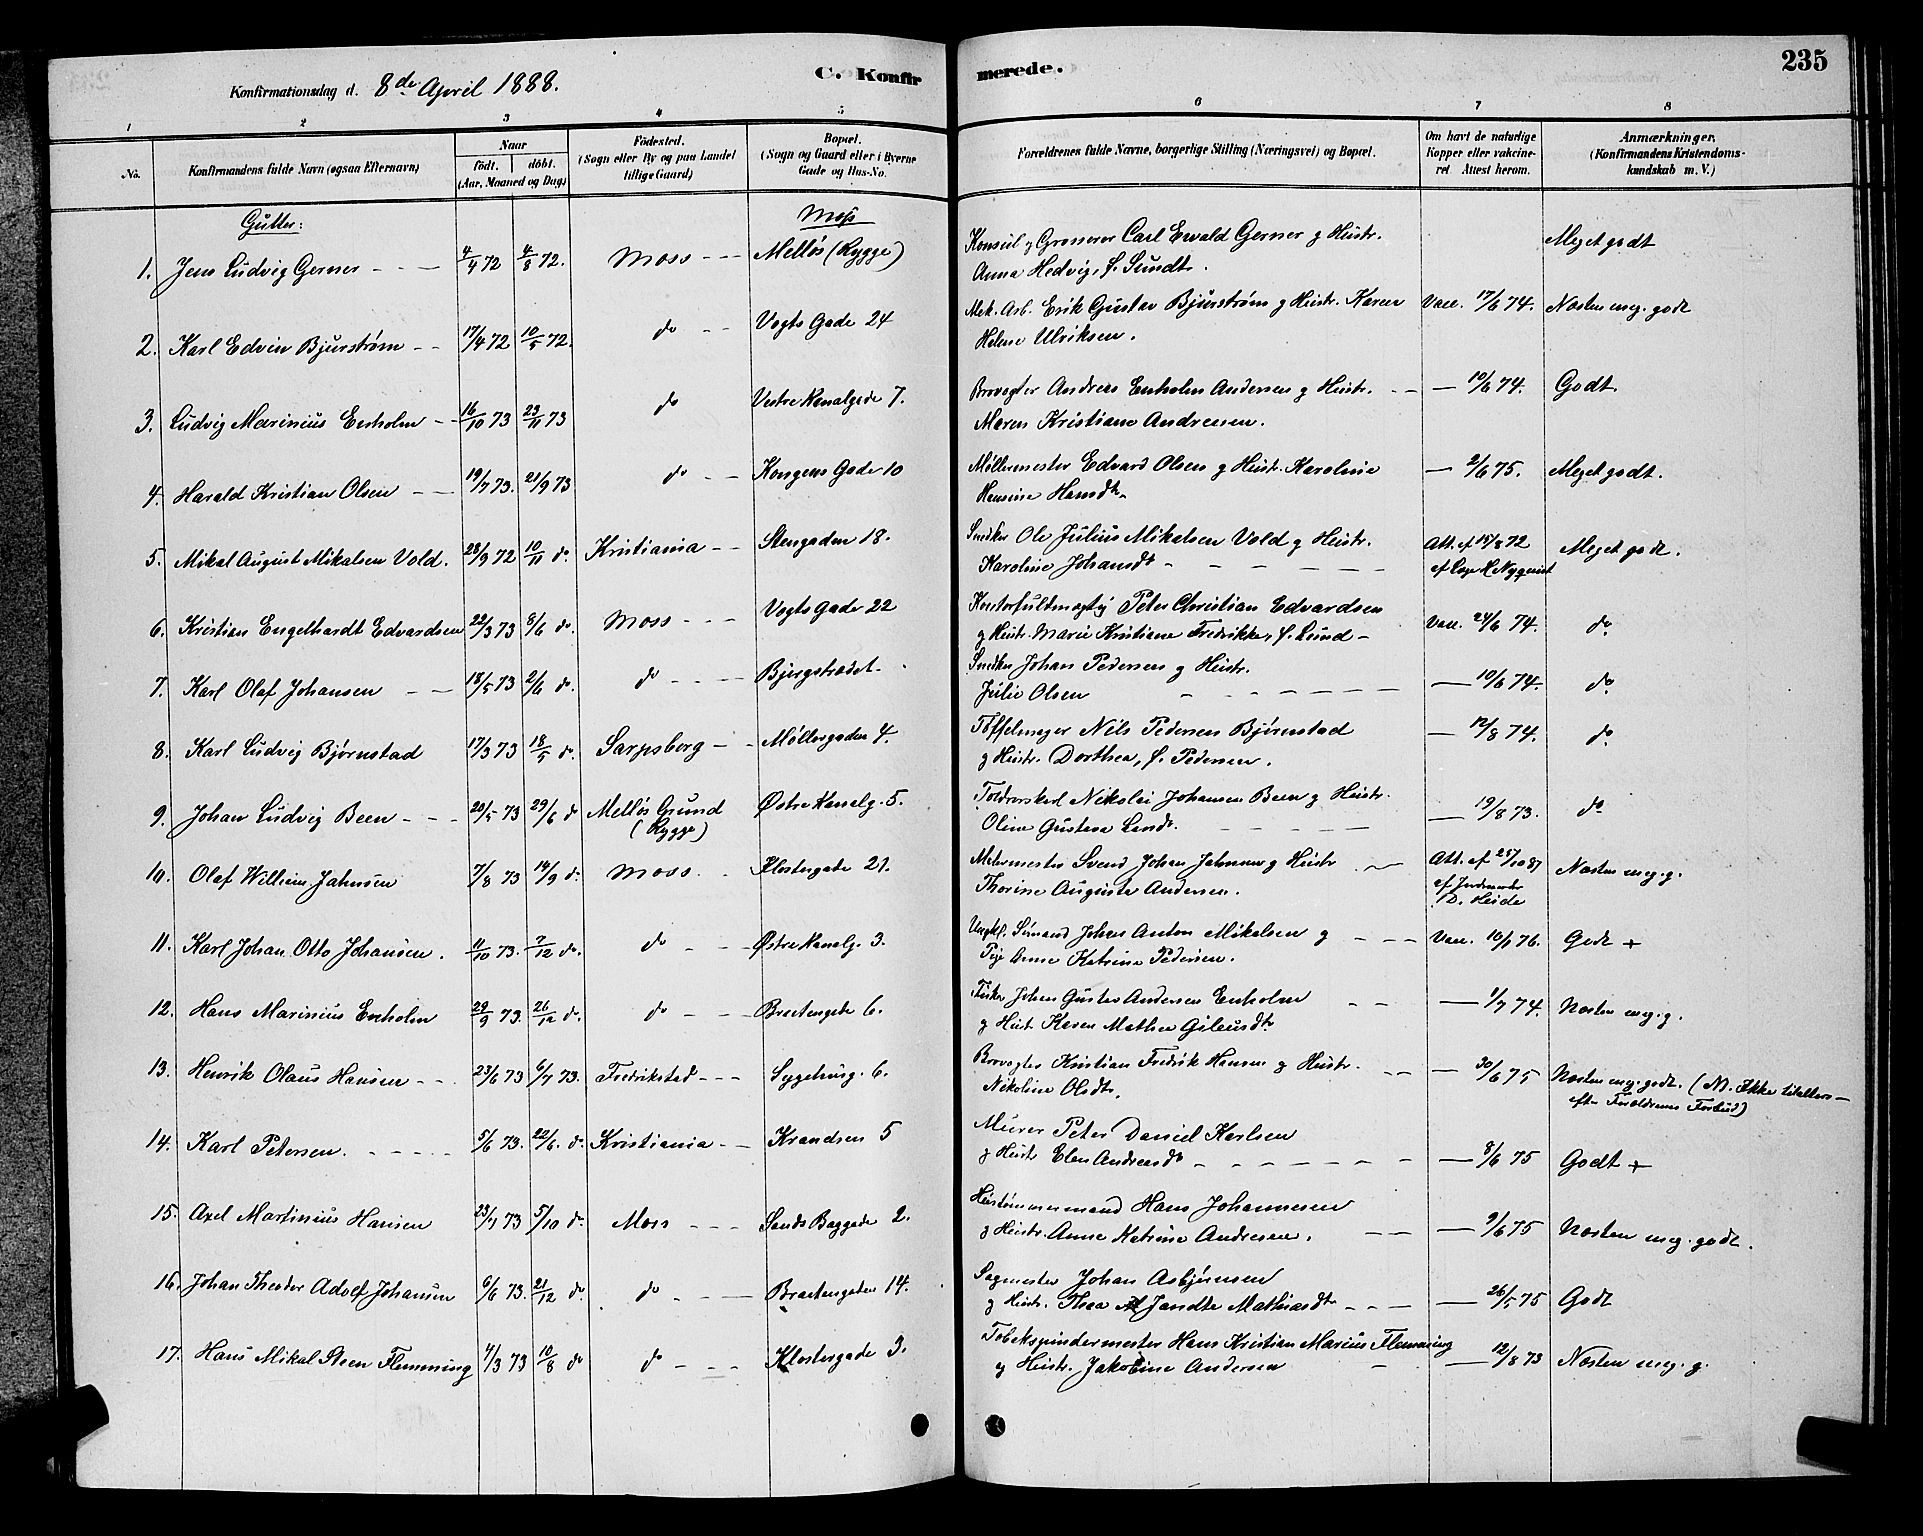 235
C. Konfirmerede.
Konfirmationsdag d. 8de April 1888.
1 2 3 4 5 6 7 8
No. Konfirmandens fulde Navn (ogsaa Efternavn) Naar födt. döbt. (Aar, Maaned og Dag) Födested. (Sogn eller By og paa Landet tillige Gaard) Bopæl. (Sogn og Gaard eller i Byerne Gade og Hus-No. Forældrenes fulde Navne, borgerlige Stilling (Næringsvei) og Bopæl. Om havt de naturlige Kopper eller vakcineret. Attest herom. Anmærkninger, (Konfirmandens Kristendomskundskab m. V.)
Gutter: Moss
1. Jens Ludvig Gerner 4/4 72 4/8 72. Moss Melløs (Rygge) Konsul og Grosserer Carl Ewald Gerner og Hustr. Meget godt
Anna Hedvig, f. Sundt.
2. Karl Edvin Bjurstrøm 17/4 72 10/5 72. do Vogts Gade 24 Mek. Arb. Erik Gustav Bjurstrøm og Hustr. Karen Vacc. 17/6 74. Næsten meg. godt
Helene Ulriksen.
3. Ludvig Marinius Enholm 16/10 73 23/11 73 do Vestre Kanalgade 7. Brovogter Andreas Enholm Andersen og Hustr. — 10/6 74. Godt
Maren Kristiane Andreasen.
4. Harald Kristian Olsen 19/7 73. 21/9 73 do Kongens Gade 10 Møllermester Edvard Olsen og Hustr. Karoline — 2/6 75. Meget godt.
Hansine Hansdt.
5. Mikal August Mikalsen Vold. 28/9 72 10/11 do. Kristiania Stengaden 18. Snedker Ole Julius Mikelsen Vold og Hustr. Att. af 15/8 72 Meget godt.
Karoline Johansdt. af Læge H. Nyquist
6. Kristian Engelhardt Edvardsen 22/3 73 8/6 do. Moss Vogts Gade 22 Kontorfuldmægtig Peter Christian Edvardsen Vacc. 24/6 74. do.
og Hustr. Marie Kristiane Fredrikke, f. Lund
7. Karl Olaf Johansen 18/5 73 2/6 do. do Bjergstrædet. Snedker Johan Pedersen og Hustr. — 10/6 74. do.
Julie Olsen
8. Karl Ludvig Bjørnstad 17/3 73 18/5 do. Sarpsborg Møllergaden 4. Tøffelmager Nils Pedersen Bjørnstad — 12/8 74. do.
og Hustr. Dorthea, f. Pedersen.
9. Johan Ludvig Been 20/5 73 29/6 do Melløs Grund (Rygge) Østre Kanalg. 5. Toldrorskarl Nikolai Johansen Been og Hustr. — 19/8 73. do
Oline Gustava
10. Olaf Willum Jahnsen 7/8 73 14/9 do. Moss. Klostergade 21. Malermester Svend Johan Jahnsen og Hustr Att. af 25/10 87 Næsten meg. g.
Thorine Augusta Andersen. af D. Heide
11. Karl Johan Otto Johansen. 11/10 73. 7/12 do. do Østre Kanalg. 3. Ungkl. Sømand Johan Anton Mikalsen og Vacc. 10/1 76. Godt +
Pige Anne Katrine Pedersen.
12. Hans Marinius Enholm 29/9 73. 26/12 do. do Bræstengade 6. Fisker Johan Gustav Andersen Enholm — 1/7 74. Næsten meg. g.
og Hust. Karen Mathea
13. Henrik Olaus Hansen 23/6 73 6/7 73. Fredrikstad Sygehusg. 6. Brovogter Kristian Fredrik Hansen og Hustr. — 30/6 75 Næsten meg. godt. (NB. Ikke tilalters
Nikoline Olsdt. efter Forældrenes Forbud)
14. Karl Petersen. 5/6 73. 22/6. do. Kristiania Krandsen 5 Murer Peter Daniel Karlsen — 8/6 75 Godt +
og Hustr Elen Andreasdt
15. Axel Martinius Hansen 23/7 73 5/10 do. Moss Sands Baggade 2. Hustømmermand Hans Johannesen — 9/6 75 Næsten meg. godt.
og Hustr. Anne Katrine Andresen.
16. Johan Theodor Adolf Johansen 6/6 73. 21/12 do. do Bræstengaden 14. Sagmester Johan Asbjørnsen — 26/5 75 Godt
og Hustr. Thea Jandte Mathiasdt
17. Hans Mikal Steen Flemming 4/3 73 10/8 do do Klostergade 3. Tobakspindermester Hans Kristian Marius Flemming — 12/8 73 Næsten meg. g.
og Hustr. Jakobine Andersen